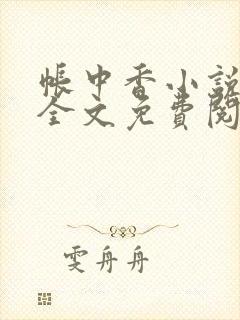 帳中香小說
全文免費閱
雯舟舟